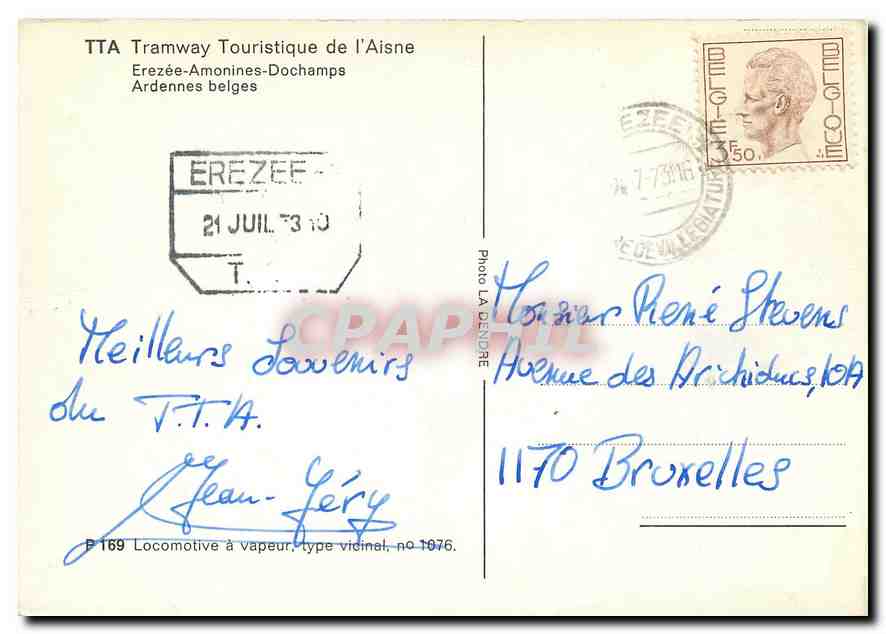 TTA Tramway Touristique de l'Aisne
Erezée-Amonines-Dochamps
Ardennes belges
EREZEE
21 JUIL 73 10
T.
Meilleurs Souvenirs
du T.T.A.
Jean-Géry
P 169 Locomotive à vapeur, type vicinal, no 1076.
Photo LA DENDRE
BELGIE BELGIQUE
3F50
EZEE
7-73
DE VILLEGIATURE
Monsieur René Stevens
Avenue des Archiducs, 10A
1170 Bruxelles
CPAPHIL